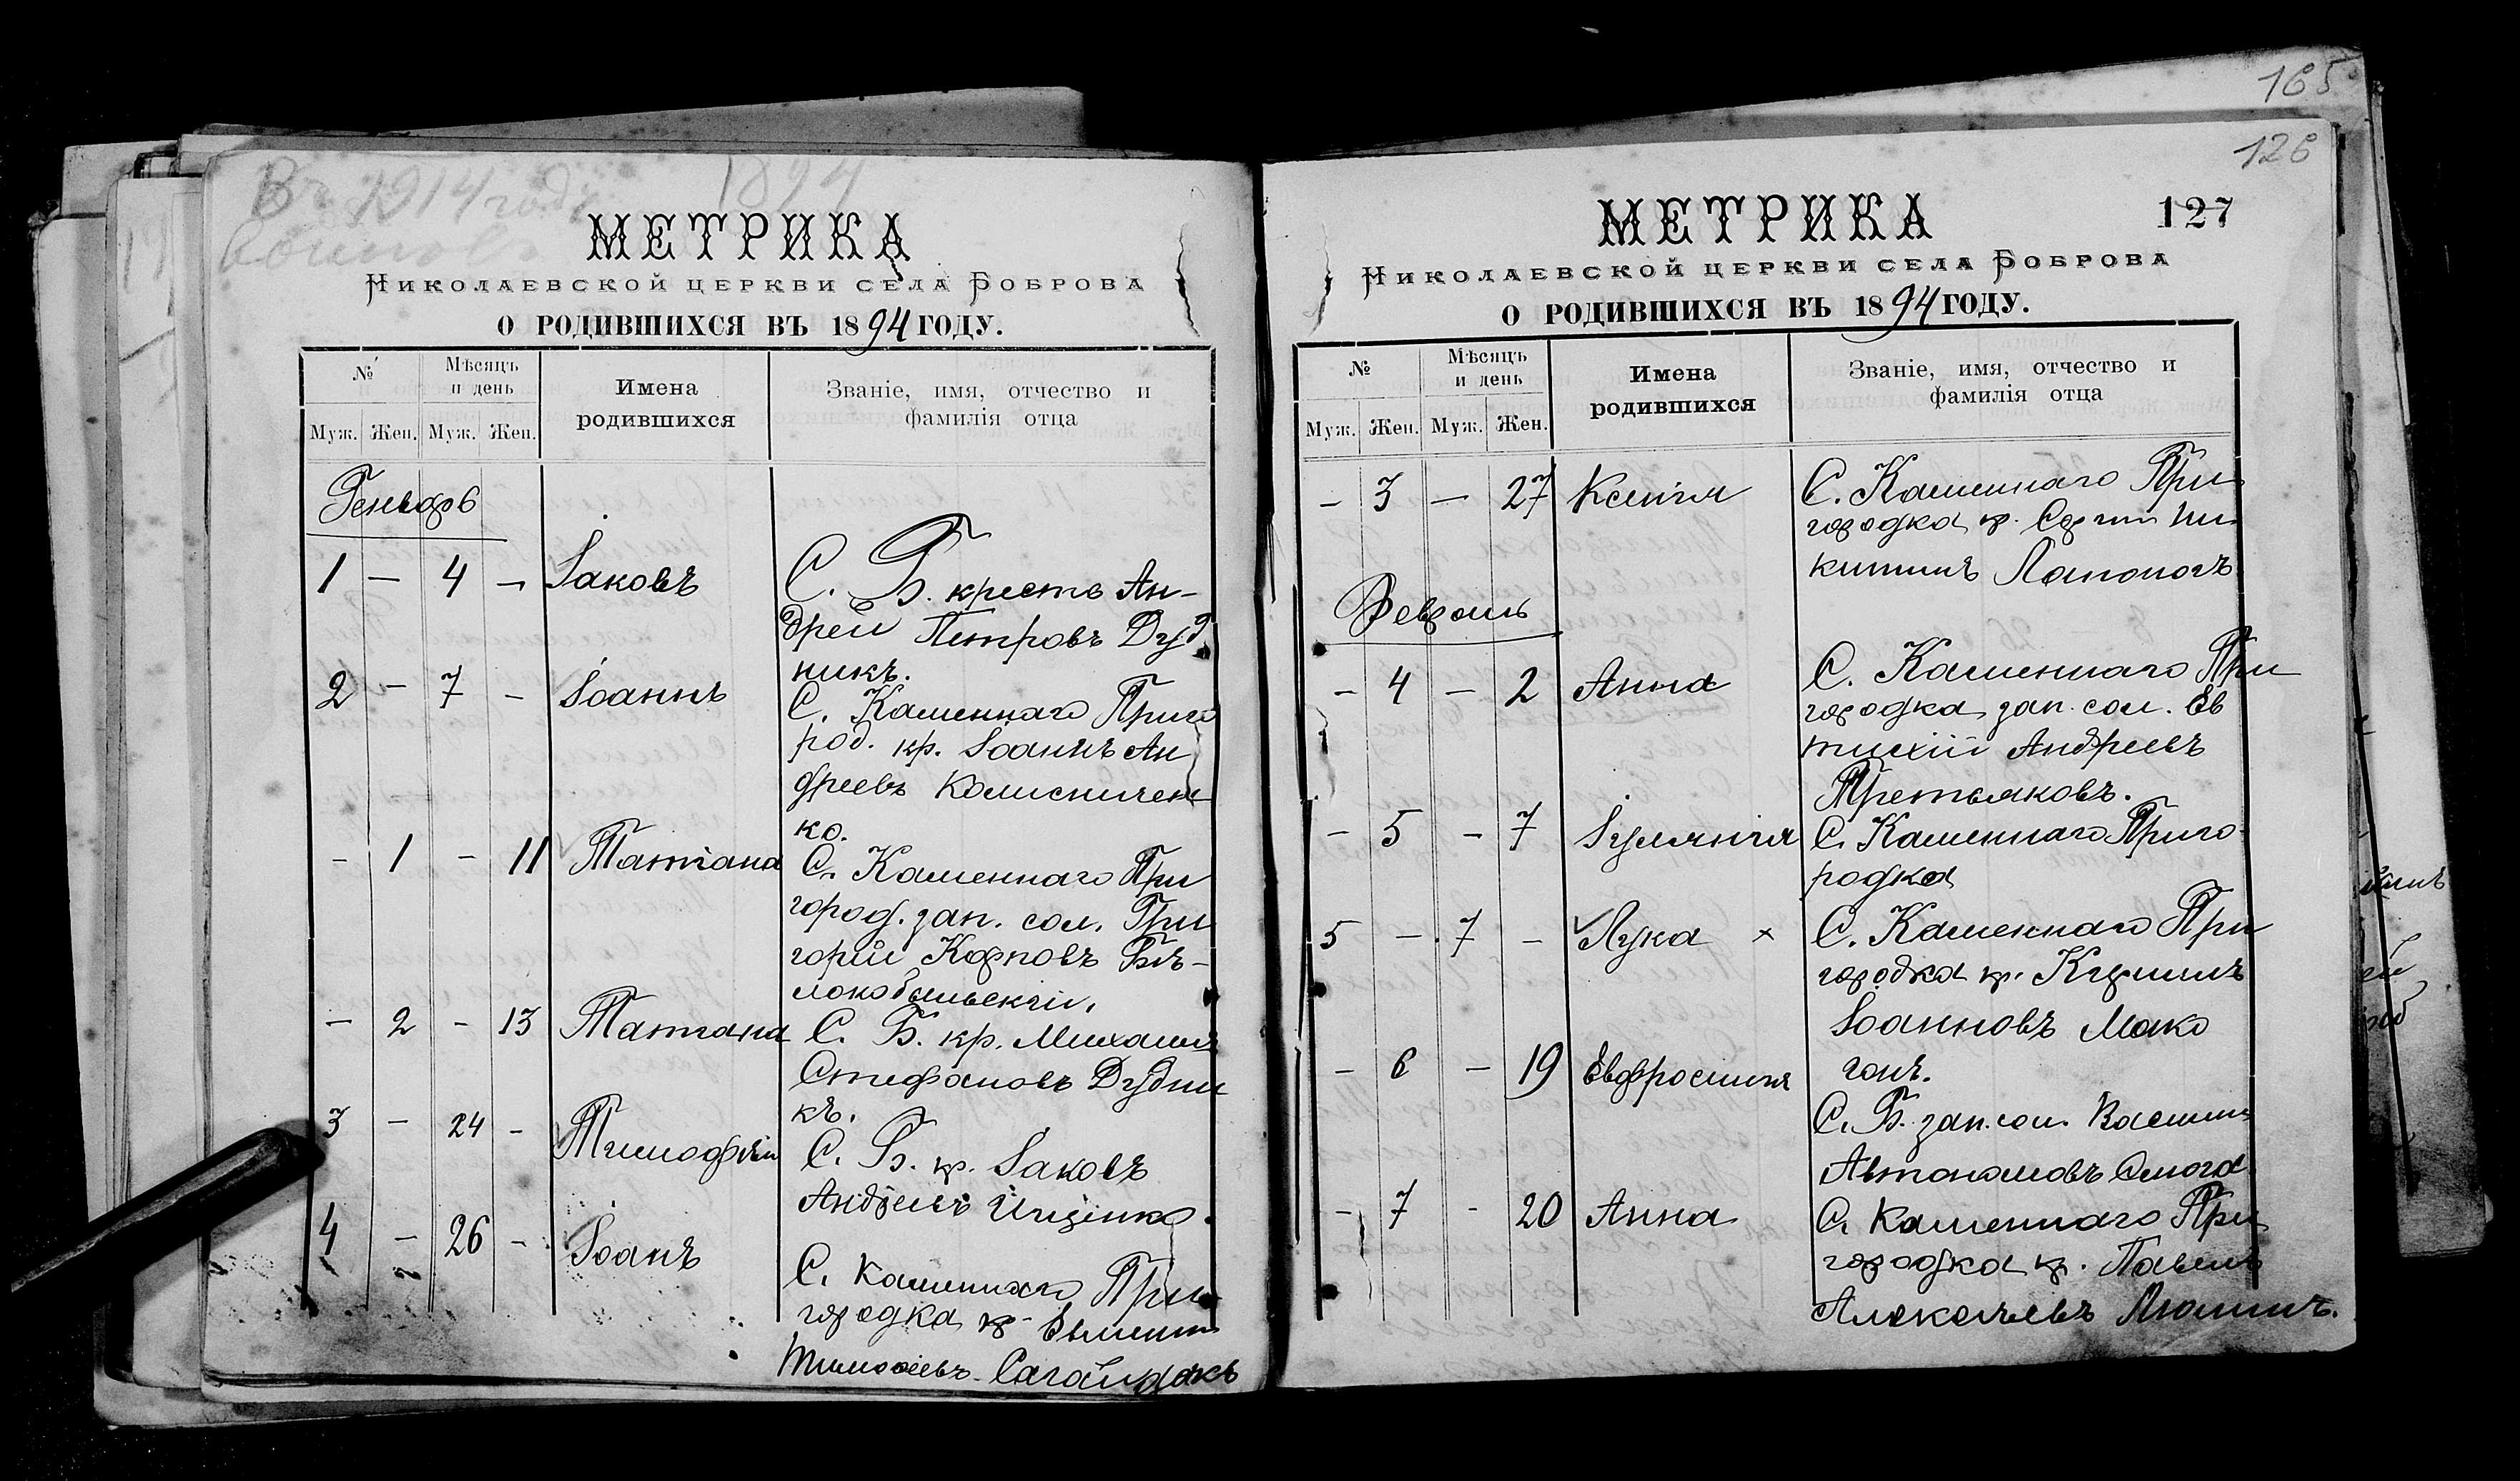 Въ 1914 году
1894
МЕТРИКА
НИКОЛАЕВСКОЙ ЦЕРКВИ СЕЛА БОБРОВА
О РОДИВШИХСЯ ВЪ 1894 ГОДУ.
№ Мѣсяцъ и день Имена родившихся Званіе, имя, отчество и фамилія отца
Муж. Жен. Муж. Жен.
Генварь
1 — 4 — Іаковъ С. Б. крестъ Ан-
дрей Петровъ Дуд
никъ.
2 — 7 — Іоаннъ С. Каменнаго Приго
род. кр. Іоаннъ Ан
дреевъ Колисничен
ко.
— 1 — 11 Татіана С. Каменнаго При
город. зап. сол. Гри
горій Карповъ Бѣ-
локобыльскій.
— 2 — 13 Татіана С. Б. кр. Михаилъ
Стефановъ Дудни
къ.
3 — 24 — Тимофѣй С. Б. кр. Іаковъ
Андреевъ Ищенко.
4 — 26 — Іоанъ С. Каменнаго При
городка кр.
Тимоѳеевъ Сагайдакъ
165
126
127
МЕТРИКА
НИКОЛАЕВСКОЙ ЦЕРКВИ СЕЛА БОБРОВА
О РОДИВШИХСЯ ВЪ 1894 ГОДУ.
№ Мѣсяцъ и день Имена родившихся Званіе, имя, отчество и фамилія отца
Муж. Жен. Муж. Жен.
— 3 — 27 Ксенія С. Каменнаго При
городка кр. Сергій Ни
китинъ
Февраль
— 4 — 2 Анна С. Каменнаго При
городка зап. сол. Ев
тихій Андреевъ
Третьяковъ.
— 5 — 7 Іуліанія С. Каменнаго Приго-
родка
5 — 7 — Лука × С. Каменнаго При
городка кр.
Іоанновъ Мако
гонъ.
— 6 — 19 Евфросинія С. Б. зап. сол. Василій
Автономовъ
— 7 — 20 Анна С. Каменнаго При
городка кр. Павелъ
Алексѣевъ